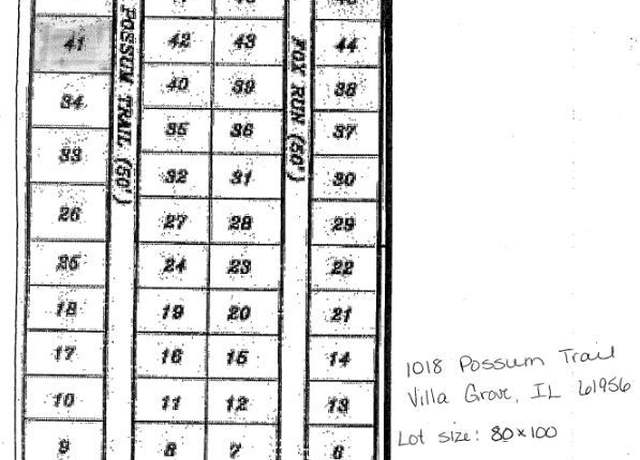 41 42 43 44
34 40 39 38
33 35 36 37
32 31 30
26 27 28 29
25 24 23 22
18 19 20 21
17 16 15 14
10 11 12 13
9 8 7 6
POSSUM TRAIL (50')
FOX RUN (50')
1018 Possum Trail
Villa Grove, IL 61956
Lot size: 80x100